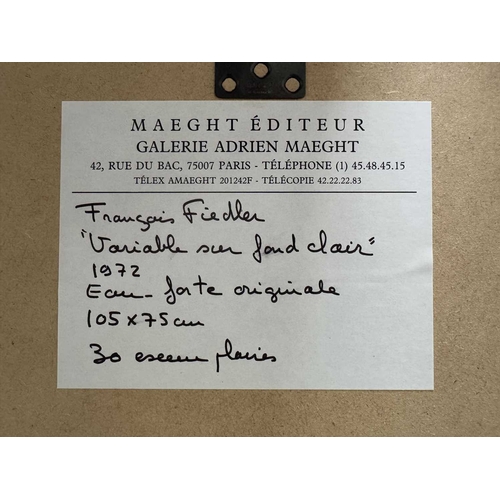 MAEGHT ÉDITEUR
GALERIE ADRIEN MAEGHT
42, RUE DU BAC, 75007 PARIS - TÉLÉPHONE (1) 45.48.45.15
TÉLEX AMAEGHT 201242F - TÉLÉCOPIE 42.22.22.83
François Fiedler
"Variable sur fond clair"
1972
Eau-forte originale
105 x 75 cm
30 exemplaires